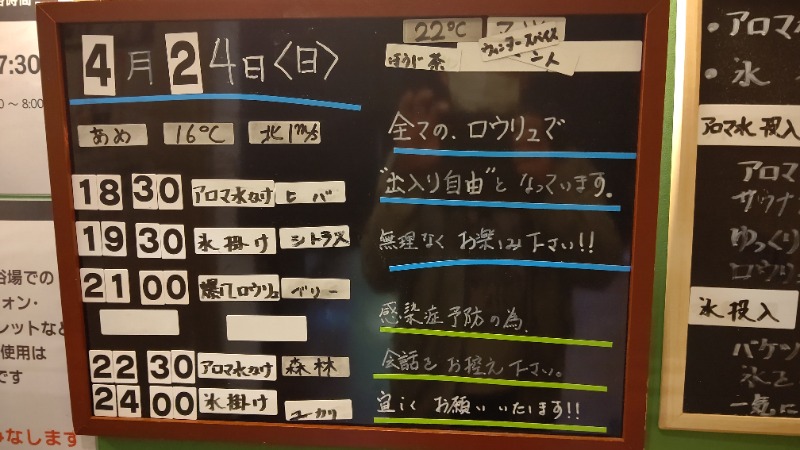 7:30
0～8:00
浴場での
使用は
です
みなします
4月24日〈日〉
あめ 16℃ 北1m/s
18 30 アロマ水かけ ヒバ
19 30 氷掛け シトラス
21 00 爆風ロウリュ ベリー
22 30 アロマ水かけ 森林
24 00 氷掛け ユーカリ
22℃
ほうじ茶 ウィンタースパイス
全ての、ロウリュで
"出入り自由"となっています。
無理なくお楽しみ下さい!!
感染症予防の為、
会話をお控え下さい。
宜しくお願いいたします!!
・アロマ
・氷
アロマ水投入
アロマ
サウナ
ゆっくり
ロウリュ
氷投入
バケツ
氷を
一気に